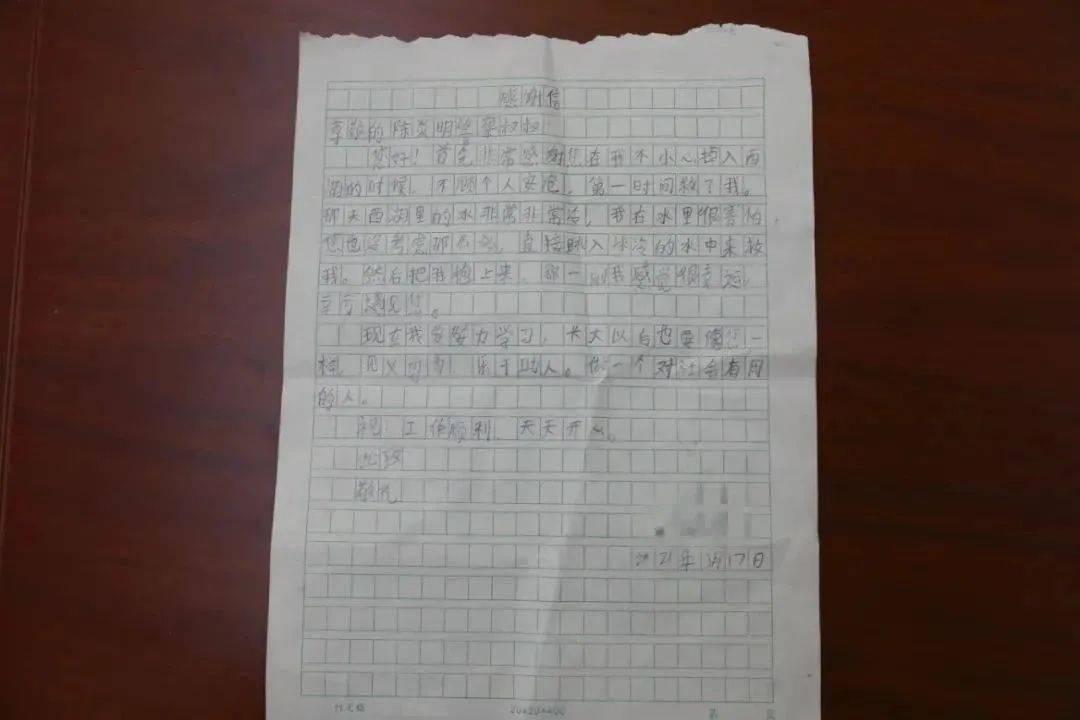 感谢信
尊敬的陈炎明警察叔叔：
您好！首先非常感谢您在我不小心掉入西
湖的时候，不顾个人安危，第一时间救了我。
那天西湖里的水非常非常冷，我在水里很害怕，
您也没考虑那么多，直接跳入冰冷的水中来救
我。然后把我抱上来，那一刻我感觉很幸运，
幸亏遇见您。
现在我会努力学习，长大以后也要像您一
样，见义勇为，乐于助人。做一个对社会有用
的人。
祝：工作顺利，天天开心。
此致
敬礼
2021年 月17日
20×20=400
第 页